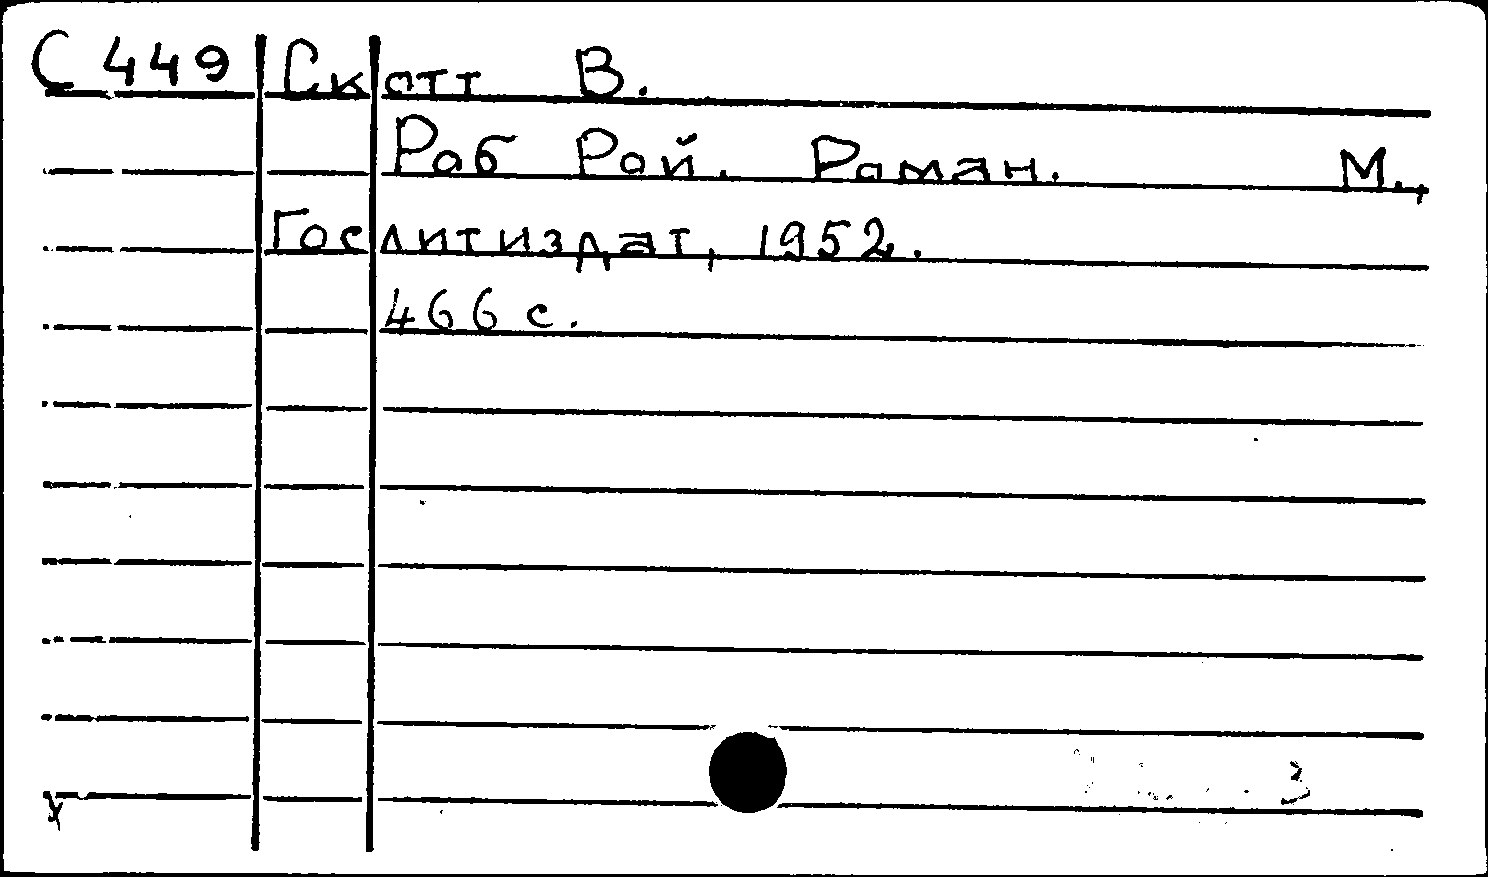 С 449 Скотт В.
Роб Рой. Роман. М.,
Гослитиздат, 1952.
466 с.